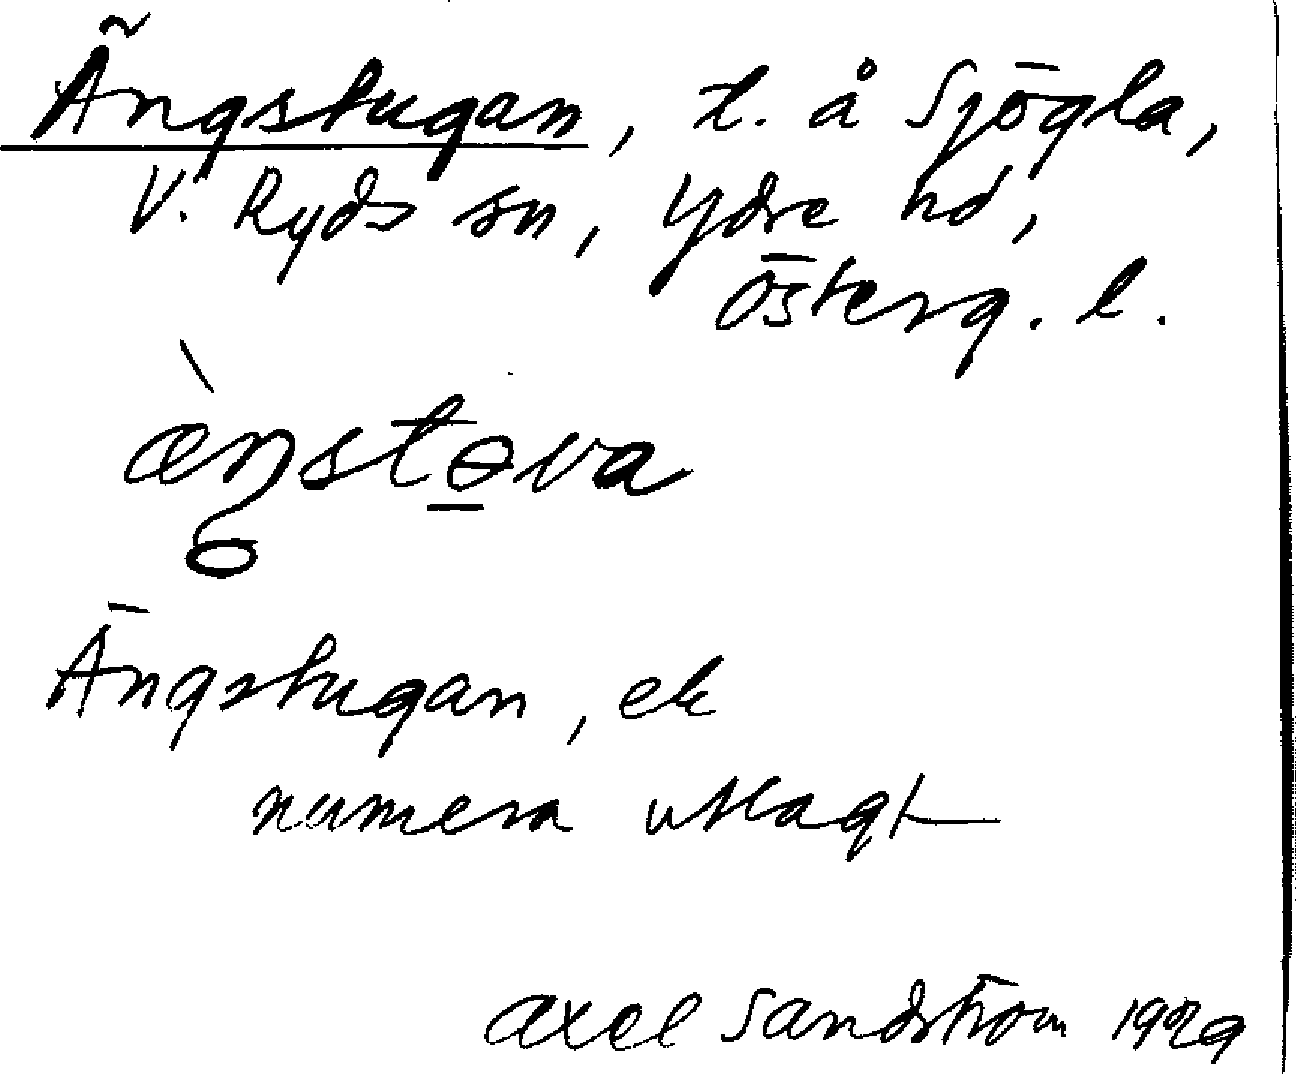 Ängstugan, t. å Sjögla,
V. Ryds sn, Ydre hd,
Österg. l.
æ̀ŋstɵva
Ängstugan, ek
numera utlagt
Axel Sandström 1929